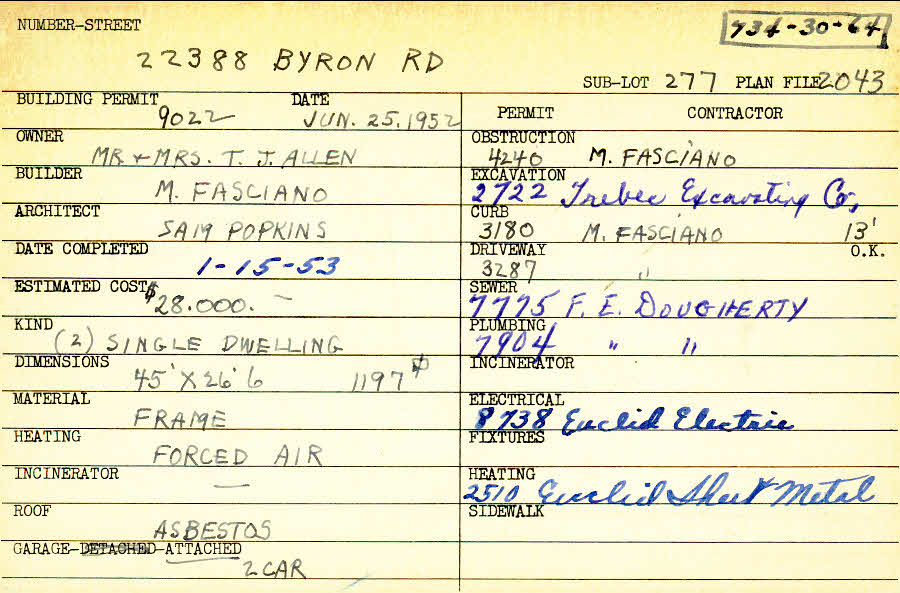 NUMBER-STREET
734-30-64
22388 BYRON RD
SUB-LOT 277 PLAN FILE 2043
BUILDING PERMIT DATE
9022 JUN. 25, 1952
OWNER
MR. + MRS. T. J. ALLEN
BUILDER
M. FASCIANO
ARCHITECT
SAM POPKINS
DATE COMPLETED
1-15-53
ESTIMATED COST
$28.000. —
KIND
(2) SINGLE DWELLING
DIMENSIONS
45' X 26' 6 1197
MATERIAL
FRAME
HEATING
FORCED AIR
INCINERATOR
—
ROOF
ASBESTOS
GARAGE-DETACHED-ATTACHED
2 CAR
PERMIT CONTRACTOR
OBSTRUCTION
4240 M. FASCIANO
EXCAVATION
2722 Trebec Excavating Co,
CURB
3180 M. FASCIANO 13'
DRIVEWAY O.K.
3287 "
SEWER
7775 F. E. DOUGHERTY
PLUMBING
7904 " "
INCINERATOR
ELECTRICAL
8738 Euclid Electric
FIXTURES
HEATING
2510 Euclid Sheet Metal
SIDEWALK